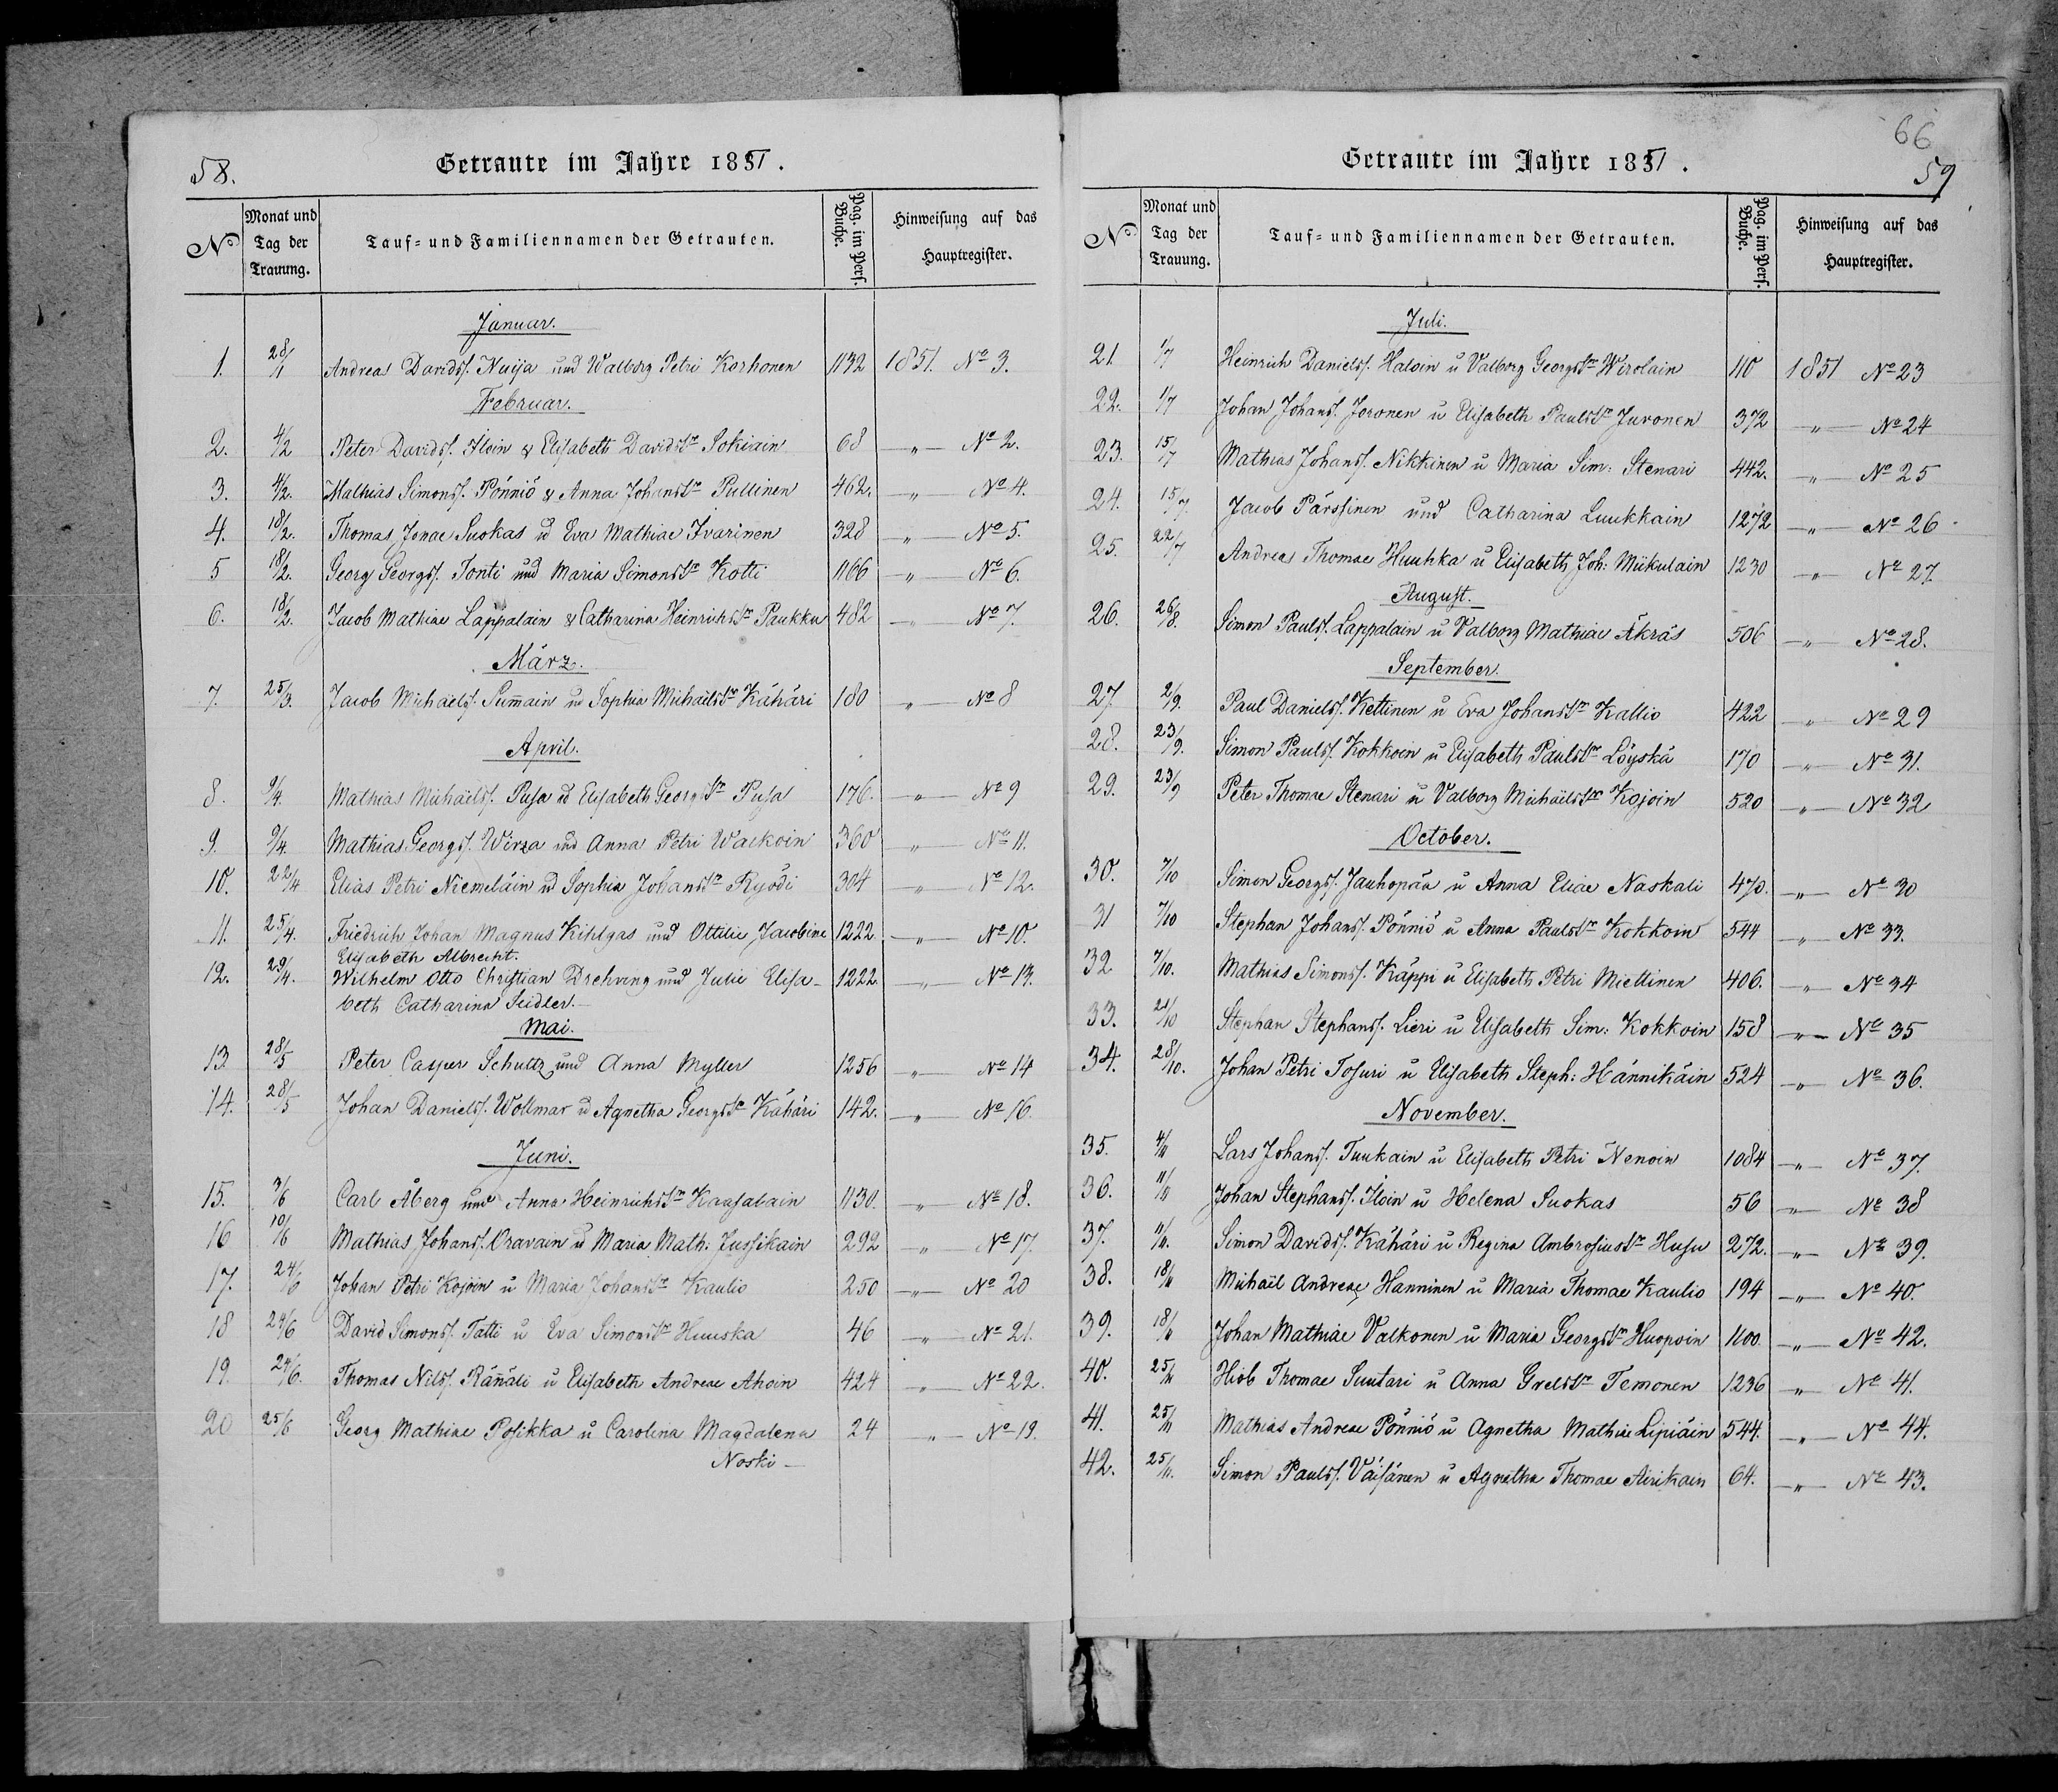 58.
Getraute im Jahre 1851.
No
Monat und Tag der Trauung.
Tauf- und Familiennamen der Getrauten.
Pag. im Pers. Buche.
Hinweisung auf das Hauptregister.
Januar.
1. 28/1 Andreas Davids. Nuija und Walborg Petri Korhonen 1132 1851. No 3.
Februar.
2. 4/2 Peter Davids. Iloin & Elisabeth Davidstr Sokiain 68 —„— No 2.
3. 4/2. Mathias Simons. Pönniö & Anna Johanstr Pullinen 462. —„— No 4.
4. 18/2. Thomas Jonae Suokas ud Eva Mathiae Ivarinen 328 —„— No 5.
5 18/2. Georg Georgs. Tonti und Maria Simonstr Kotti 1166 —„— No 6.
6. 18/2. Jacob Mathiae Lappalain & Catharina Heinrichstr Paukku 482 —„— No 7.
März.
7. 25/3. Jacob Michaels. Sum̄ain ud Sophia Michaelstr Kähäri 180 —„— No 8
April.
8. 9/4. Mathias Michaels. Pusa ud Elisabeth Georgstr Pusa 176. —„— No 9
9. 9/4. Mathias Georgs. Wirza und Anna Petri Waikoin 360 —„— No 11.
10. 22/4 Elias Petri Niemeläin ud Sophia Johanstr Ryödi 304 —„— No 12.
11. 25/4. Friedrich Johan Magnus Kihlgas und Ottilie Jacobine 1222 —„— No 10.
Elisabeth Albrecht.
12. 29/4. Wilhelm Otto Christian Drehving und Julie Elisa- 1222. —„— No 13.
beth Catharina Seidler.—
Mai.
13. 28/5 Peter Casper Schultz und Anna Myller 1256 —„— No 14
14. 28/5 Johan Daniels. Wollmar ud Agnetha Georgstr Kähäri 142. —„— No 16.
Juni.
15. 3/6 Carl Åberg und Anna Heinrichstr Kaasalain 1130. —„— No 18.
16 10/6 Mathias Johans. Oravain ud Maria Math: Jussikain 292 —„— No 17.
17. 24/6 Johan Petri Kojoin u Maria Johanstr Kaulio 250 —„— No 20
18 24/6 David Simons. Tatti u Eva Simonstr Huuska 46 —„— No 21.
19. 24/6. Thomas Nils. Rän̄äli u Elisabeth Andreae Ahoin 424 —„— No 22.
20 25/6 Georg Mathiae Posikka u Carolina Magdalena 24 —„— No 19.
Noski —
66
59
Getraute im Jahre 1851.
No
Monat und Tag der Trauung.
Tauf- und Familiennamen der Getrauten.
Pag. im Pers. Buche.
Hinweisung auf das Hauptregister.
Juli.
21. 1/7 Heinrich Daniels. Haloin u Valborg Georgstr Wirolain 110 1851 No 23
22. 1/7 Johan Johans. Joronen u Elisabeth Paulstr Juvonen 372 —„— No 24
23. 15/7 Mathias Johans. Nikkinen u Maria Sim: Stenari 442. —„— No 25
24. 15/7. Jacob Pärssinen und Catharina Luukkain 1272 —„— No 26
25. 22/7 Andreas Thomae Huuhka u Elisabeth Joh: Mikulain 1230 —„— No 27.
August.
26. 26/8. Simon Pauls. Lappalain u Valborg Mathiae Äkräs 506 —„— No 28.
September.
27. 2/9. Paul Daniels. Kettinen u Eva Johanstr Kallio 422 —„— No 29
28. 23/9. Simon Pauls. Kokkoin u Elisabeth Paulstr Löyskä 170 —„— No 31.
29. 23/9 Peter Thomae Stenari u Valborg Michaelstr Kojoin 520 —„— No 32
October.
30. 7/10 Simon Georgs. Jauhopää u Anna Eliae Naskali 470. —„— No 30
31 7/10 Stephan Johans. Pönniö u Anna Paulstr Kokkoin 544 —„— No 33.
32 7/10. Mathias Simons. Käppi u Elisabeth Petri Miettinen 406. —„— No 34
33. 21/10 Stephan Stephans. Lieri u Elisabeth Sim: Kokkoin 158 —„— No 35
34. 28/10. Johan Petri Tosuri u Elisabeth Steph: Hännikäin 524 —„— No 36.
November.
35. 4/11 Lars Johans. Tuukain u Elisabeth Petri Nenoin 1084 —„— No 37.
36. 11/11 Johan Stephans. Iloin u Helena Suokas 56 —„— No 38
37. 11/11. Simon Davids. Kähäri u Regina Ambrosiustr Husu 272. —„— No 39.
38. 18/11 Michaël Andreae Hanninen u Maria Thomae Kaulio 194 —„— No 40.
39. 18/11 Johan Mathiae Valkonen u Maria Georgstr Huopoin 1100. —„— No 42.
40. 25/11 Hiob Thomae Suutari u Anna Grelstr Temonen 1236 —„— No 41.
41. 25/11 Mathias Andreae Pönniö u Agnetha Mathiae Lipiäin 544. —„— No 44.
42. 25/11. Simon Pauls. Väisänen u Agnetha Thomae Airikain 64. —„— No 43.